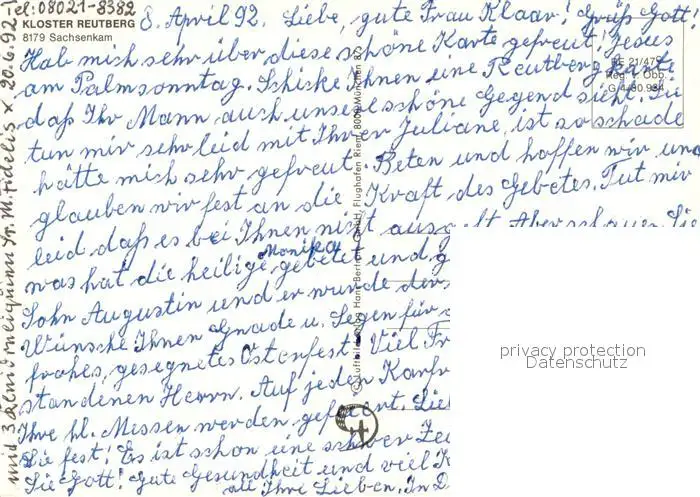 Tel: 08021-8382
KLOSTER REUTBERG
8179 Sachsenkam
8. April 92. Liebe, gute Frau Klaar! Grüß Gott!
Hab mich sehr über diese schöne Karte gefreut, Jesus
am Palmsonntag. Schicke Ihnen eine Reutberg Karte
daß Ihr Mann auch unsere schöne Gegend sieht. Sie
tun mir sehr leid mit Ihrer Juliane, ist so schade
hätte mich sehr gefreut. Beten und hoffen wir und
glauben wir fest an die Kraft des Gebetes. Tut mir
leid daß es bei Ihnen nicht ausgeht. Aber schauen Sie
was hat die heilige Monika gebetet und
Sohn Augustin und er wurde
Wünsche Ihnen Gnade u. Segen für
frohes, gesegnetes Osterfest! Viel
standenen Herrn. Auf jeden
Ihre hl. Messen werden gefeiert.
Sie fest! Es ist schon eine schwere
Sie Gott! Gute Gesundheit und viel
alle Ihre Lieben. In
und
Sr. M. Fidelis
20.6.92
© Luftbildverlag Hans Bertram GmbH, Flughafen Riem, 8000 München 87
BE 21/475
Reg. v. Obb.
G 4/30.984
privacy protection
Datenschutz